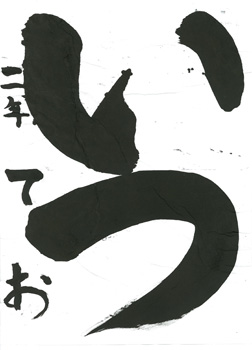 いつ
二年 てお